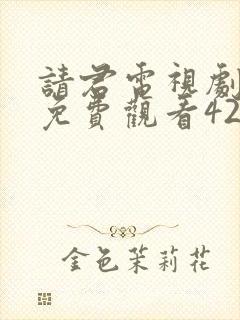 請君電視劇
免費觀看42
金色茉莉花